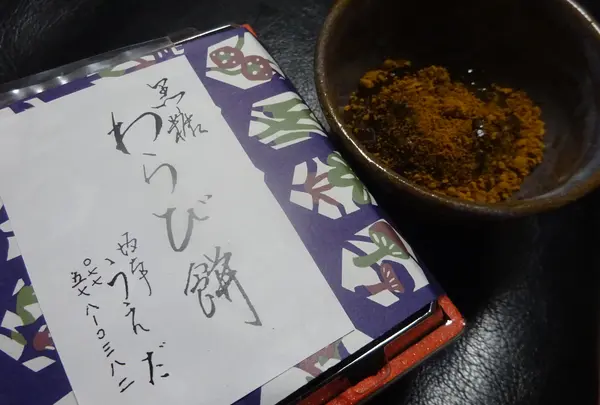 黒糖
わらび餅
うえだ
〇七七
五七八-〇三八二